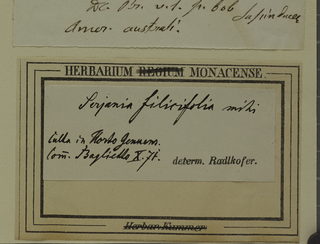 De Br. v. 1. p. 606
Sapindaceae
Amer. australi.
HERBARIUM REGIUM MONACENSE.
Serjania filicifolia mihi
Culta in Horto Genuens.
Com. Baglietto X. 71.
determ. Radlkofer.
Herbar. Kummer